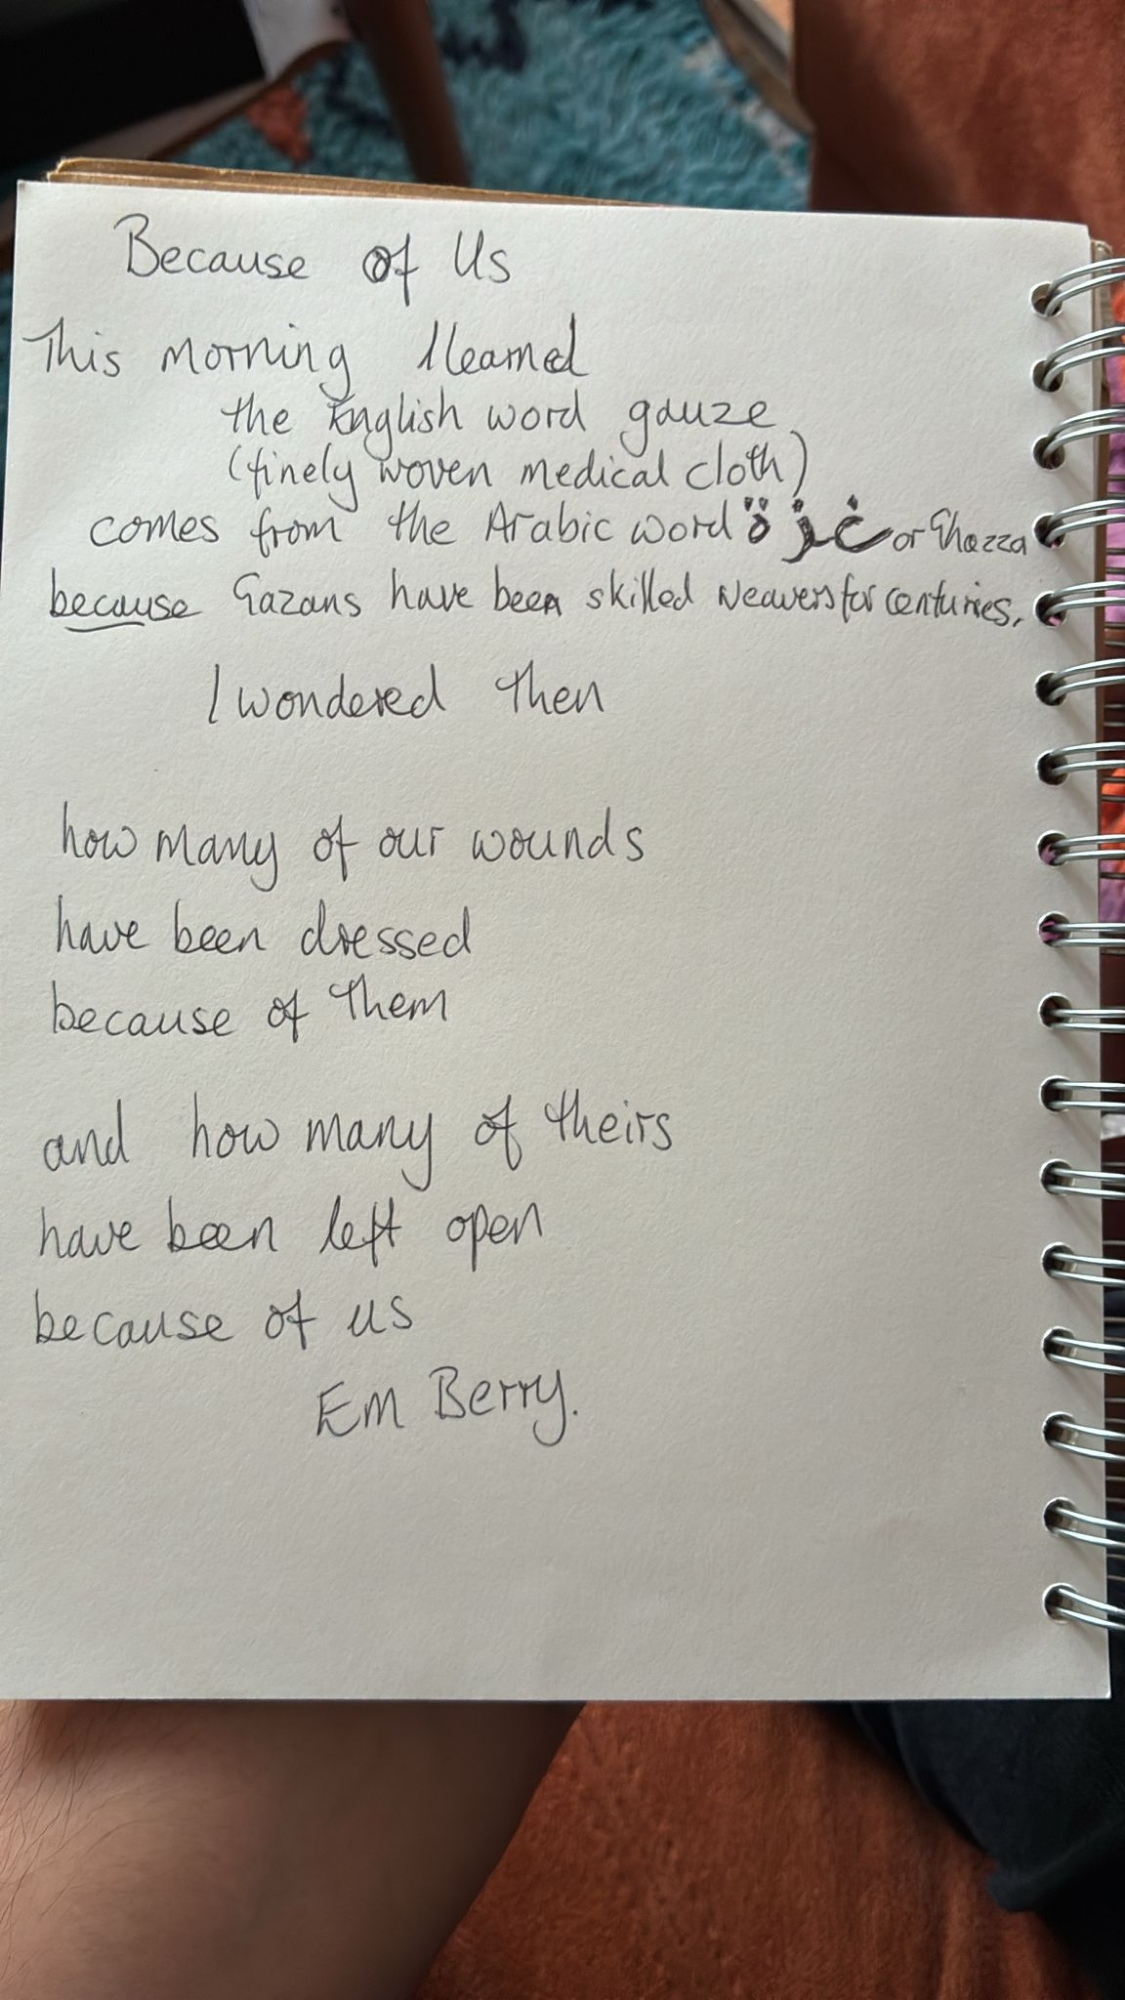 Because of Us
This morning I learned
the English word gauze
(finely woven medical cloth)
comes from the Arabic word غزة or Ghazza
because Gazans have been skilled weavers for centuries.
I wondered then
how many of our wounds
have been dressed
because of them
and how many of theirs
have been left open
because of us
Em Berry.